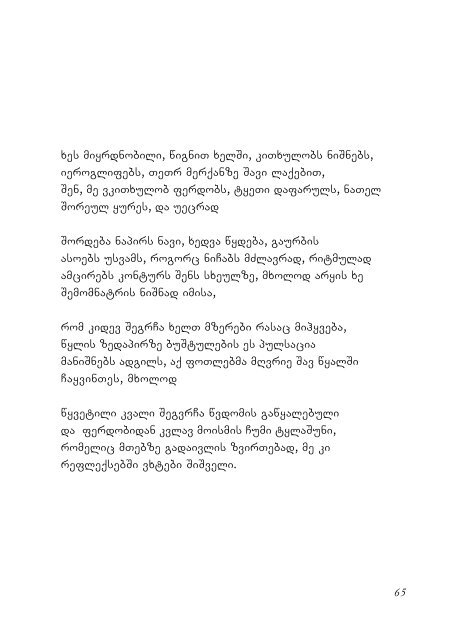 ხეს მიყრდნობილი, წიგნით ხელში, კითხულობს ნიშნებს,
იეროგლიფებს, თეთრ მერქანზე შავი ლაქებით,
შენ, მე ვკითხულობ ფერდობს, ტყეთი დაფარულს, ნათელ
შორეულ ყურეს, და უეცრად
შორდება ნაპირს ნავი, ხედვა წყდება, გაურბის
ასოებს უსვამს, როგორც ნიჩაბს მძლავრად, რიტმულად
ამცირებს კონტურს შენს სხეულზე, მხოლოდ არყის ხე
შემომნატრის ნიშნად იმისა,
რომ კიდევ შეგრჩა ხელთ მზერები რასაც მიჰყვება,
წყლის ზედაპირზე ბუშტულების ეს პულსაცია
მანიშნებს ადგილს, აქ ფოთლებმა მღვრიე შავ წყალში
ჩაყვინთეს, მხოლოდ
წყვეტილი კვალი შეგვრჩა წვდომის გაწყალებული
და ფერდობიდან კვლავ მოისმის ჩუმი ტყლაშუნი,
რომელიც მთებზე გადაივლის ზვირთებად, მე კი
რეფლექსებში ვხტები შიშველი.
65